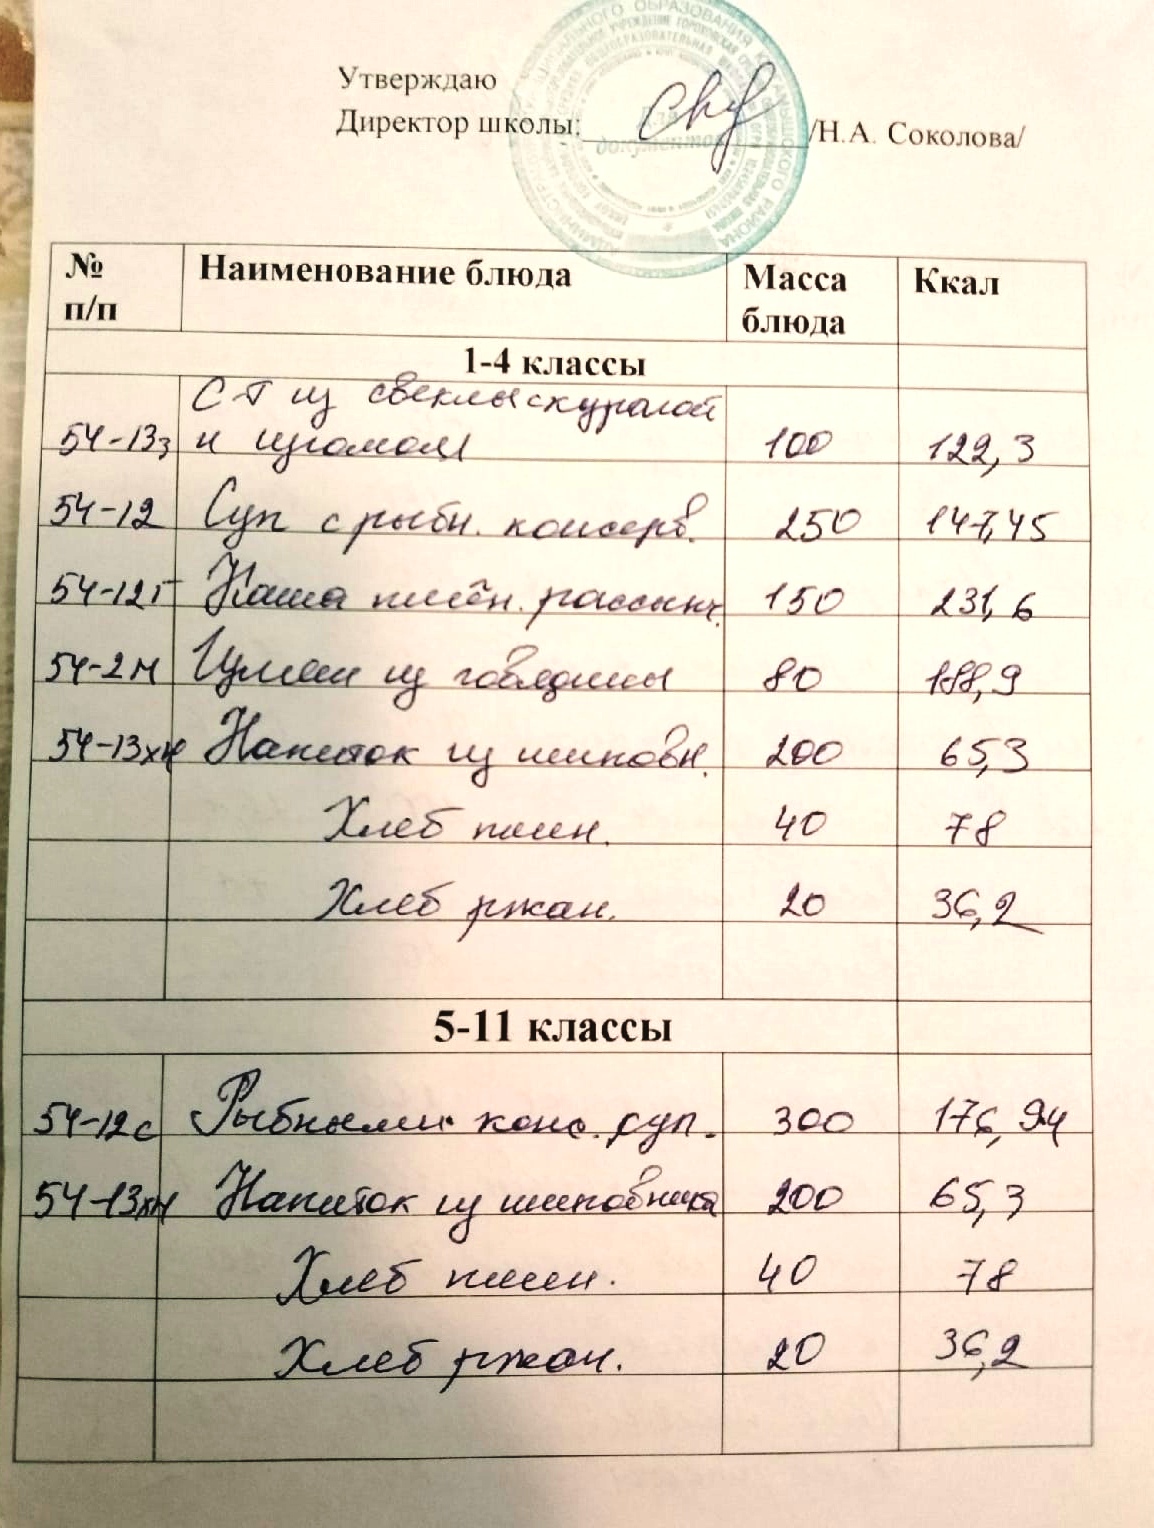 Утверждаю
Директор школы: /Н.А. Соколова/
Для
документов
№ п/п Наименование блюда Масса блюда Ккал
1-4 классы
С-т из свеклы с курагой
54-13з и изюмом 100 122,3
54-12 Суп с рыбн. консерв. 250 147,45
54-12г Каша пшён. рассыпч. 150 231,6
54-2м Гуляш из говядины 80 188,9
54-13хн Напиток из шиповн. 200 65,3
Хлеб пшен. 40 78
Хлеб ржан. 20 36,2
5-11 классы
54-12с Рыбными конс. суп. 300 176,94
54-13хн Напиток из шиповника 200 65,3
Хлеб пшен. 40 78
Хлеб ржан. 20 36,2